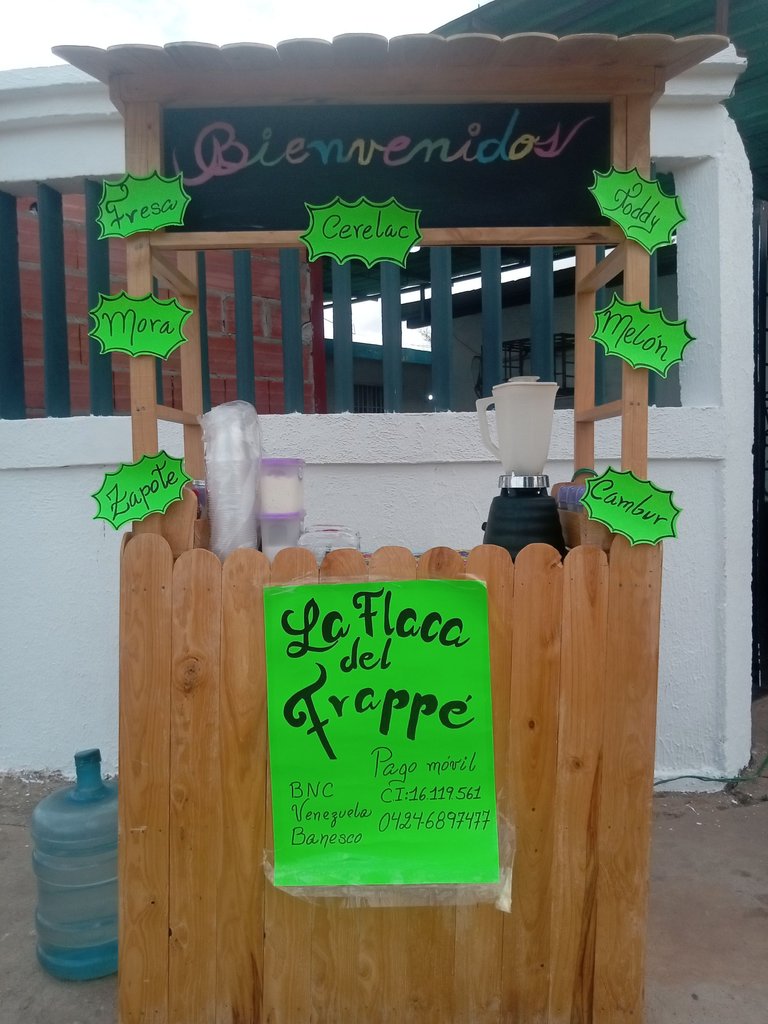 Bienvenidos
Fresa
Cerelac
Toddy
Mora
Melón
Zapote
Cambur
La Flaca
del
Frappé
Pago móvil
BNC
C.I:16.119.561
Venezuela
0424-6897477
Banesco